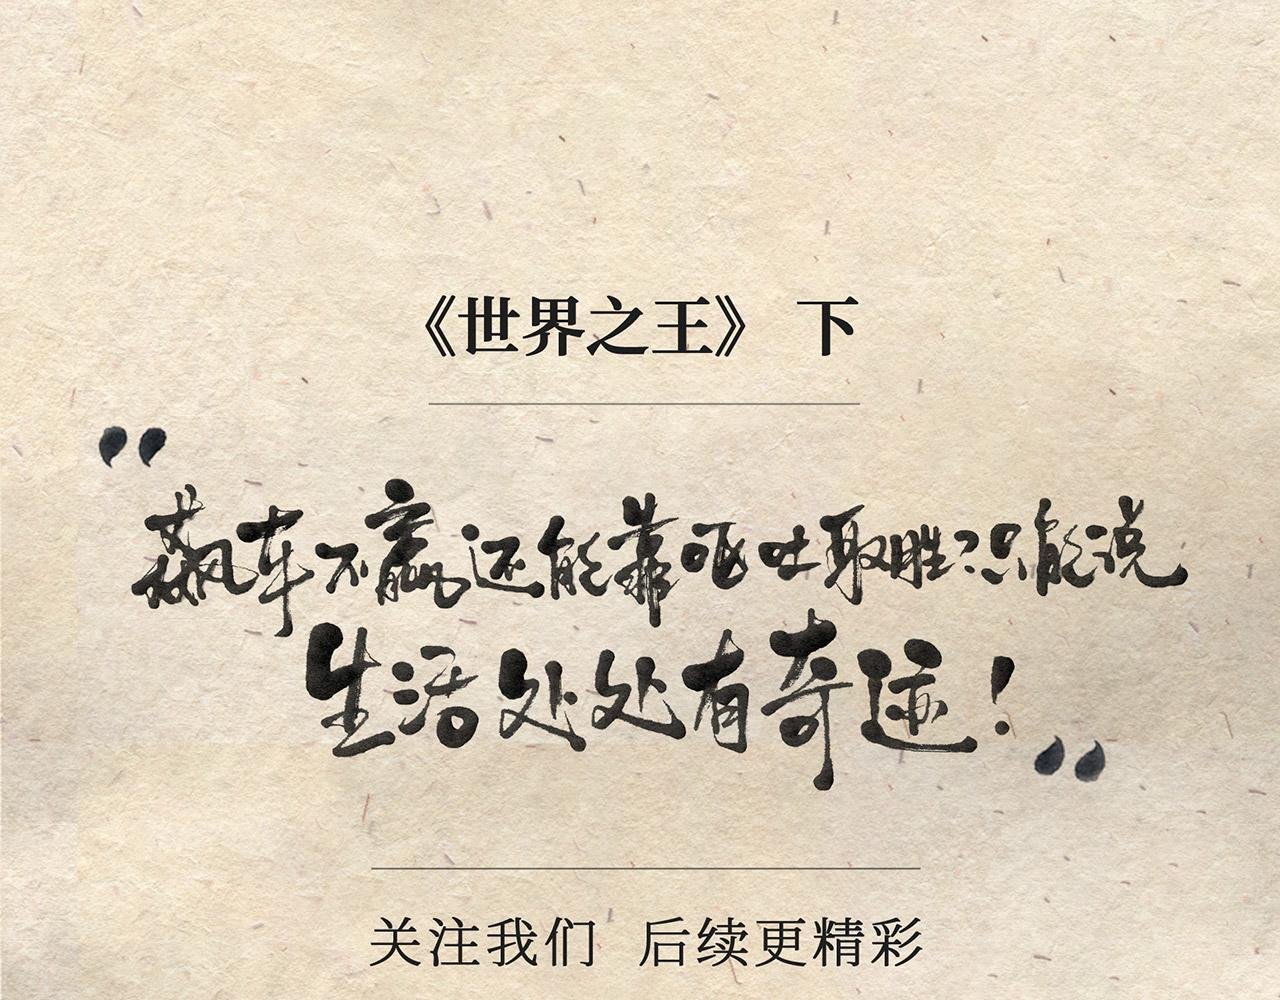 《世界之王》 下
"飙车不赢还能靠呕吐取胜?只能说
生活处处有奇迹!"
关注我们 后续更精彩